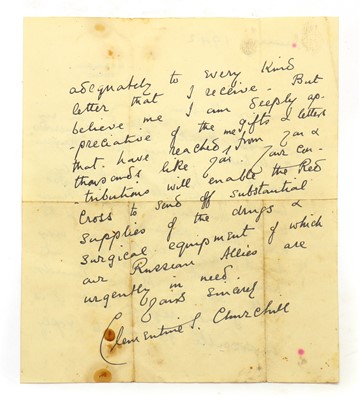 adequately to every kind
letter that I receive. But
believe me I am deeply ap-
-preciative of the gifts & letters
that have reached me from you &
thousands like you. Your con-
tributions will enable the Red
Cross to send off substantial
supplies of the drugs &
surgical equipment of which
our Russian Allies are
urgently in need.
Yours sincerely
Clementine S. Churchill